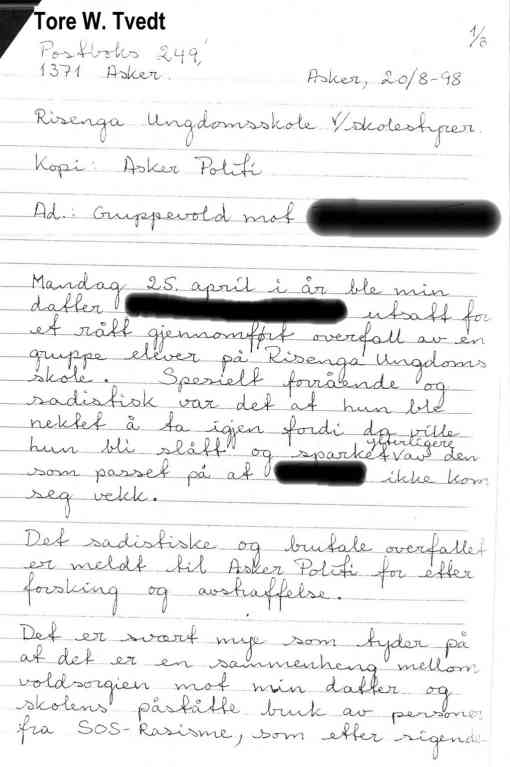 Tore W. Tvedt
1/3
Postboks 249,
1371 Asker.
Asker, 20/8-98
Risenga Ungdomsskole v/skolestyrer.
Kopi: Asker Politi
Ad.: Gruppevold mot
Mandag 25. april i år ble min
datter utsatt for
et rått gjennomført overfall av en
gruppe elever på Risenga Ungdoms
skole. Spesielt forrående og
sadistisk var det at hun ble
nektet å ta igjen fordi da ville
hun bli slått og sparket ytterligere av den
som passet på at ikke kom
seg vekk.
Det sadistiske og brutale overfallet
er meldt til Asker Politi for etter
forsking og avstraffelse.
Det er svært mye som tyder på
at det er en sammenheng mellom
voldsorgien mot min datter og
skolens påståtte bruk av personer
fra SOS-Rasisme, som etter sigende